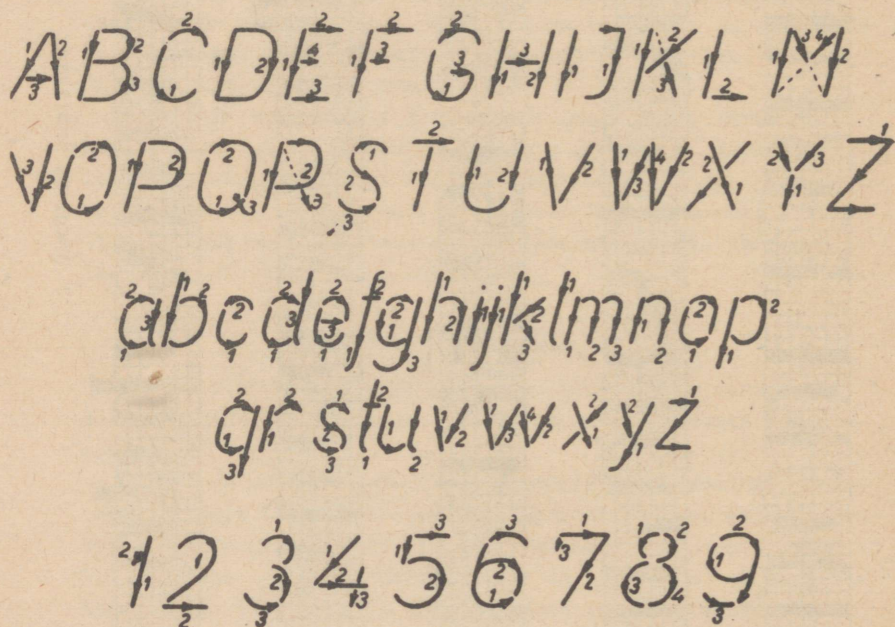 ABCDEFGHIJKLM
NOPQRSTUVWXYZ
abcdefghijklmnop
qrstuvwxyz
123456789